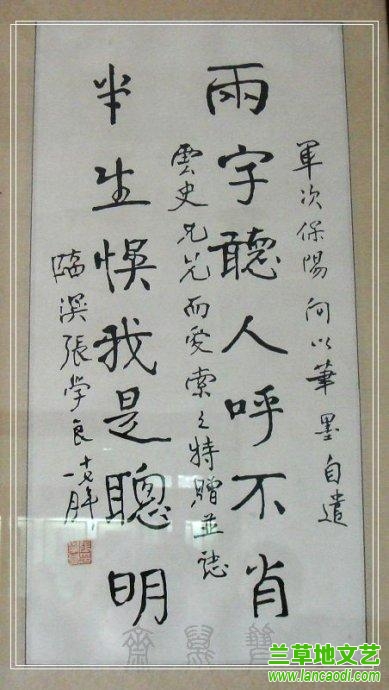 軍次保陽向以筆墨自遣
兩字聽人呼不肖
雲史兄見而愛索之特贈並誌
半生悞我是聰明
臨溟張學良
兰草地文艺
www.lancaodi.com